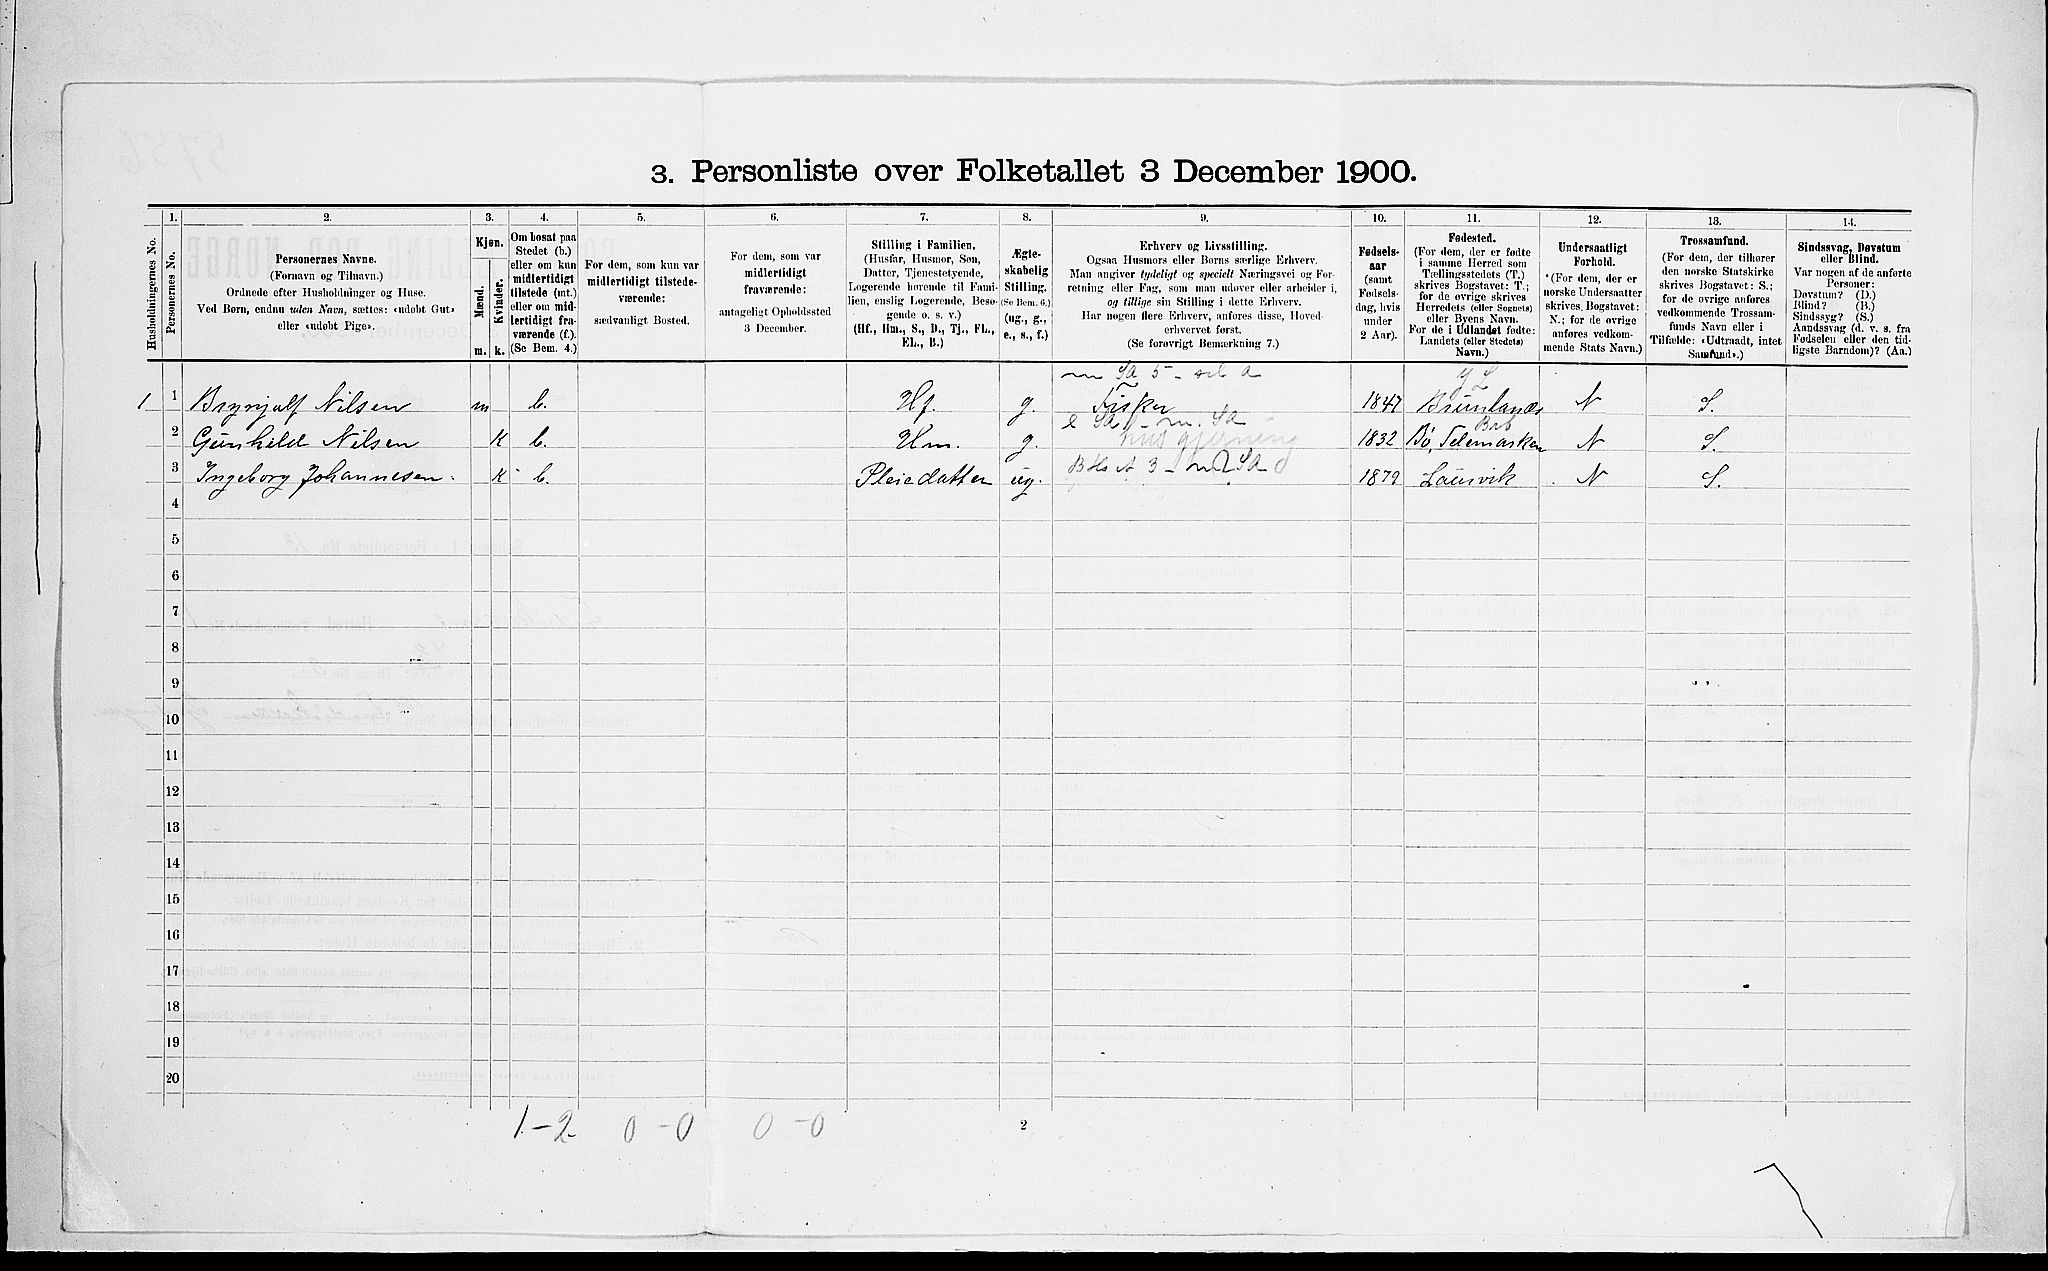 3. Personliste over Folketallet 3 December 1900.
Husholdningernes No.
1.
Personernes No.
2.
Personernes Navne.
(Fornavn og Tilnavn.)
Ordnede efter Husholdninger og Huse.
Ved Børn, endnu uden Navn, sættes: «udøbt Gut»
eller «udøbt Pige».
3.
Kjøn.
Mænd.
Kvinder.
m. k.
4.
Om bosat paa
Stedet (b.)
eller om kun
midlertidigt
tilstede (mt.)
eller om mid-
lertidigt fra-
værende (f.).
(Se Bem. 4.)
5.
For dem, som kun var
midlertidigt tilstede-
værende:
sædvanligt Bosted.
6.
For dem, som var
midlertidigt
fraværende:
antageligt Opholdssted
3 December.
7.
Stilling i Familien.
(Husfar, Husmor, Søn,
Datter, Tjenestetyende,
Logerende hørende til Fami-
lien, enslig Logerende, Besø-
gende o. s. v.)
(Hf., Hm., S., D., Tj., FL.,
EL., B.)
8.
Ægte-
skabelig
Stilling.
(Se Bem. 6.)
(ug., g.,
e., s., f.)
9.
Erhverv og Livsstilling.
Ogsaa Husmors eller Børns særlige Erhverv.
Man angiver tydeligt og specielt Næringsvei og For-
retning eller Fag, som man udøver eller arbeider i,
og tillige sin Stilling i dette Erhverv.
Har nogen flere Erhverv, anføres disse, Hoved-
erhvervet først.
(Se forøvrigt Bemærkning 7.)
10.
Fødsels-
aar
(samt
Fødsels-
dag, hvis
under
2 Aar).
11.
Fødested.
(For dem, der er fødte
i samme Herred som
Tællingsstedets (T.)
skrives Bogstavet: T.;
for de øvrige skrives
Herredets (eller Sognets)
eller Byens Navn.
For de i Udlandet fødte:
Landets (eller Stedets)
Navn.)
12.
Undersaatligt
Forhold.
(For dem, der er
norske Undersaatter
skrives Bogstavet:
N.; for de øvrige
anføres vedkom-
mende Stats Navn.)
13.
Trossamfund.
(For dem, der tilhører
den norske Statskirke
skrives Bogstavet: S.;
for de øvrige anføres
vedkommende Trossam-
funds Navn eller i
Tilfælde: «Udtraadt, intet
Samfund».)
14.
Sindssvag, Døvstum
eller Blind.
Var nogen af de anførte
Personer:
Døvstum? (D.)
Blind? (B.)
Sindssyg? (S.)
Aandssvag (d. v. s. fra
Fødselen eller den tid-
ligste Barndom)? (Aa.)
1 1 Brynjulf Nilsen m b. Hf. g. Fisker 1847 Brunlanæs N S.
2 Gunhild Nilsen K b. Hm. g. husgjerning 1832 Bø, Telemarken N S.
3 Ingeborg Johannesen. K b. Pleiedatter ug. 1879 Laurvik N S.
4
5
6
7
8
9
10
11
12
13
14
15
16
17
18
19
20
1-2 0-0 0-0
2